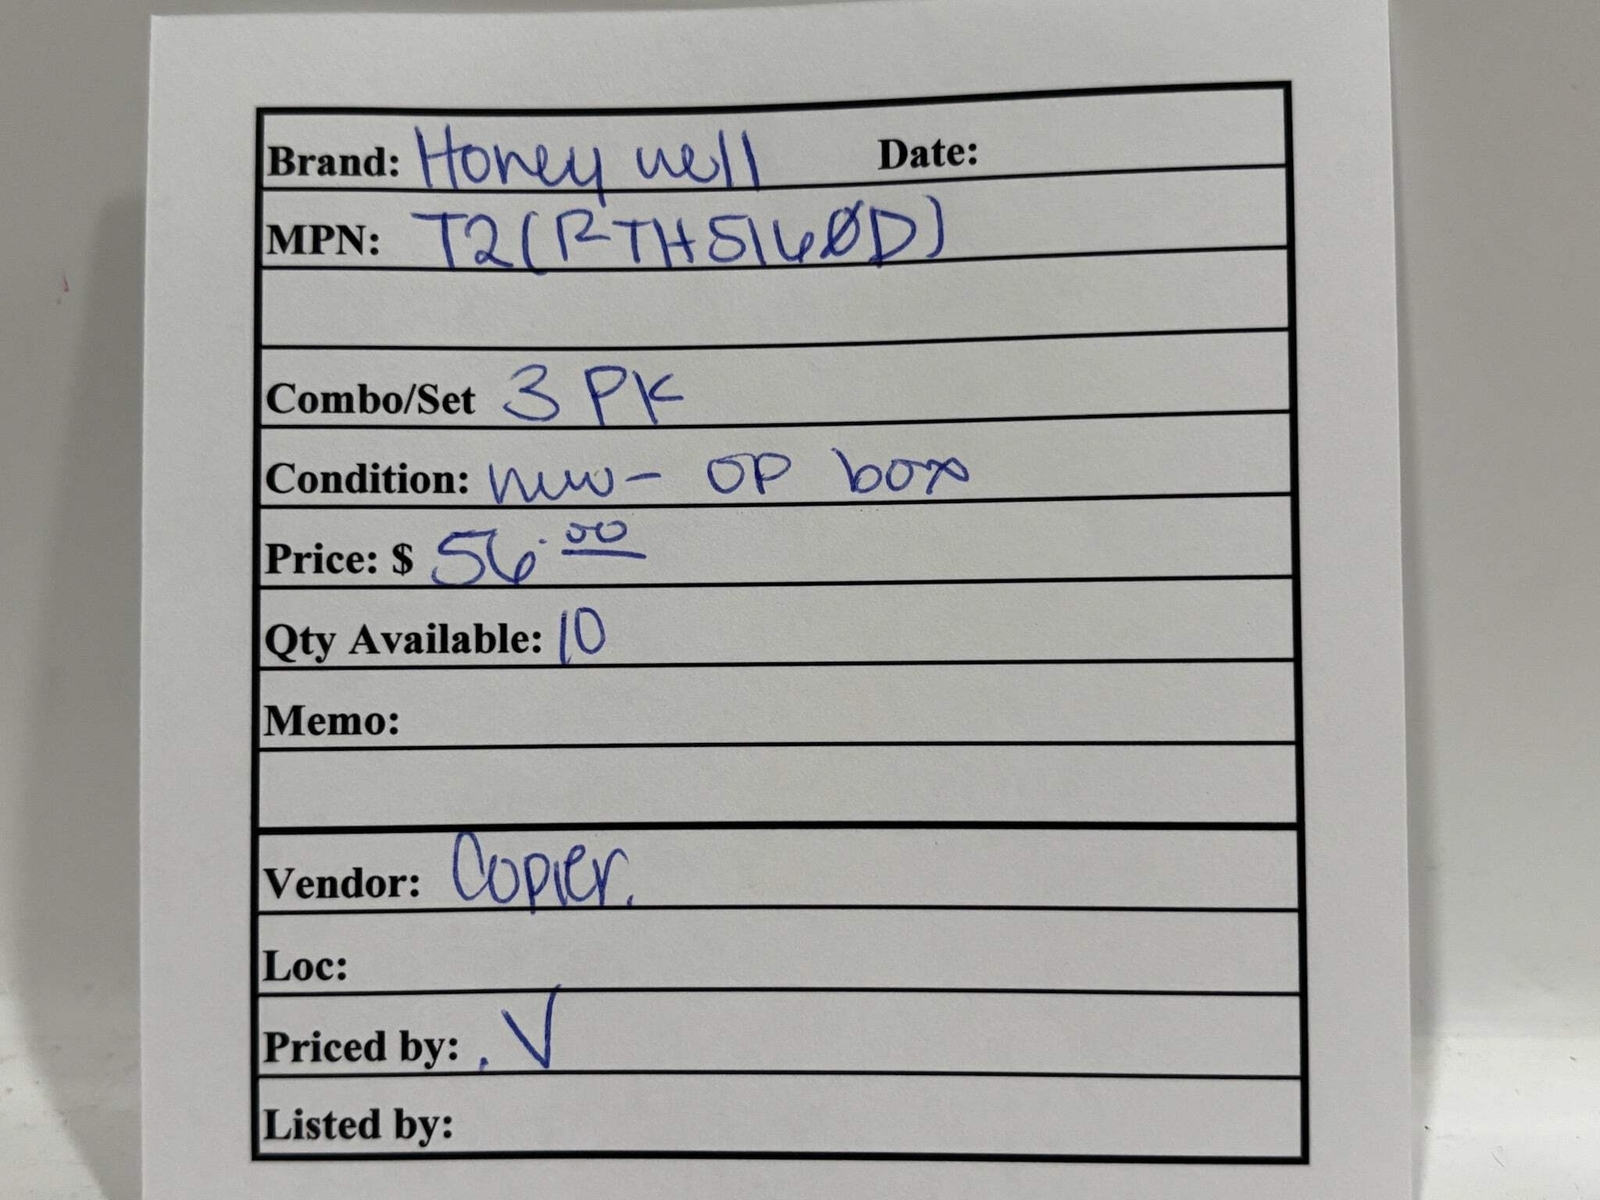 Brand: Honeywell Date:
MPN: T2(RTH5160D)
Combo/Set 3 PK
Condition: new- OP box
Price: $ 56.00
Qty Available: 10
Memo:
Vendor: Copier.
Loc:
Priced by: .V
Listed by: